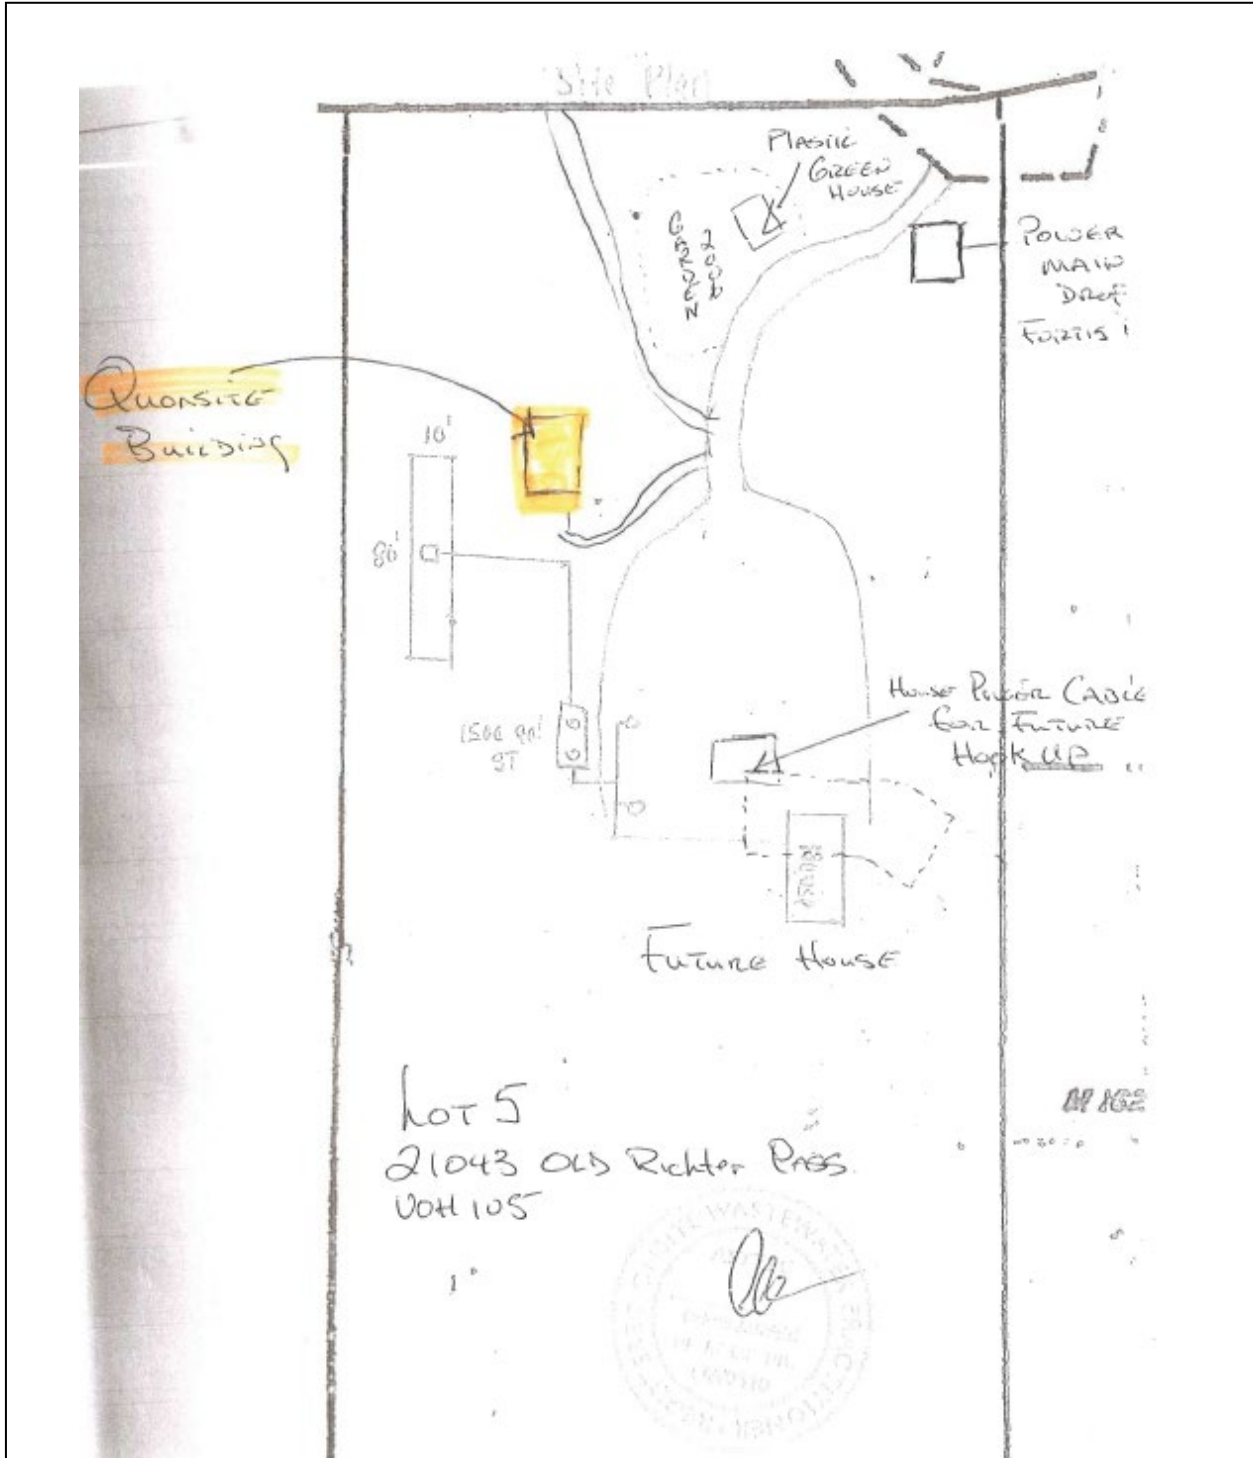 Site Plan
PLASTIC
GREEN
HOUSE
GARDEN
ZONE
POWER
MAIN
FORTIS
QUONSITE
BUILDING
10'
80'
1500 gal
ST
HOUSE POWER CABLE
FOR FUTURE
HOOK UP
HOUSE
FUTURE HOUSE
LOT 5
21043 OLD Richter PASS
V0H 1U5
WASTEWATER